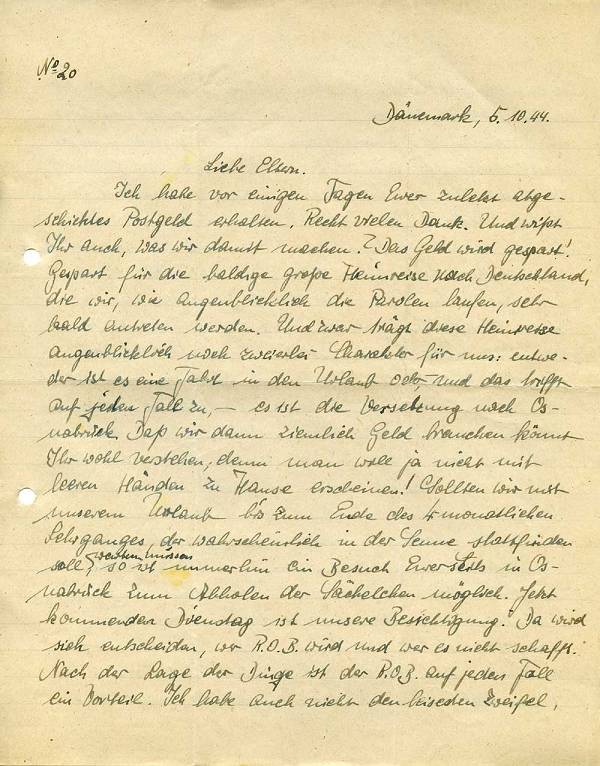 No 20
Dänemark, 5.10.44.
Liebe Eltern.
Ich habe vor einigen Tagen Euer zuletzt abge-
schicktes Postgeld erhalten. Recht vielen Dank. Und wißt
Ihr auch, was wir damit machen? Das Geld wird gespart!
Gespart für die baldige große Heimreise nach Deutschland,
die wir, wie augenblicklich die Parolen laufen, sehr
bald antreten werden. Und zwar trägt diese Heimreise
augenblicklich noch zweierlei Charakter für uns: entwe-
der ist es eine Fahrt in den Urlaub oder und das trifft
auf jeden Fall zu, – es ist die Versetzung nach Os-
nabrück. Daß wir dann ziemlich Geld brauchen könnt
Ihr wohl verstehen, denn man will ja nicht mit
leeren Händen zu Hause erscheinen! Sollten wir mit
unserem Urlaub bis zum Ende des 4 monatlichen
Lehrganges, der wahrscheinlich in der Senne stattfinden
soll, warten müssen so ist immerhin ein Besuch Eurerseits in Os-
nabrück zum Abholen der Sächelchen möglich. Jetzt
kommenden Dienstag ist unsere Besichtigung. Da wird
sich entscheiden, wer R.O.B. wird und wer es nicht schafft.
Nach der Lage der Dinge ist der R.O.B. auf jeden Fall
ein Vorteil. Ich habe auch nicht den leisesten Zweifel,